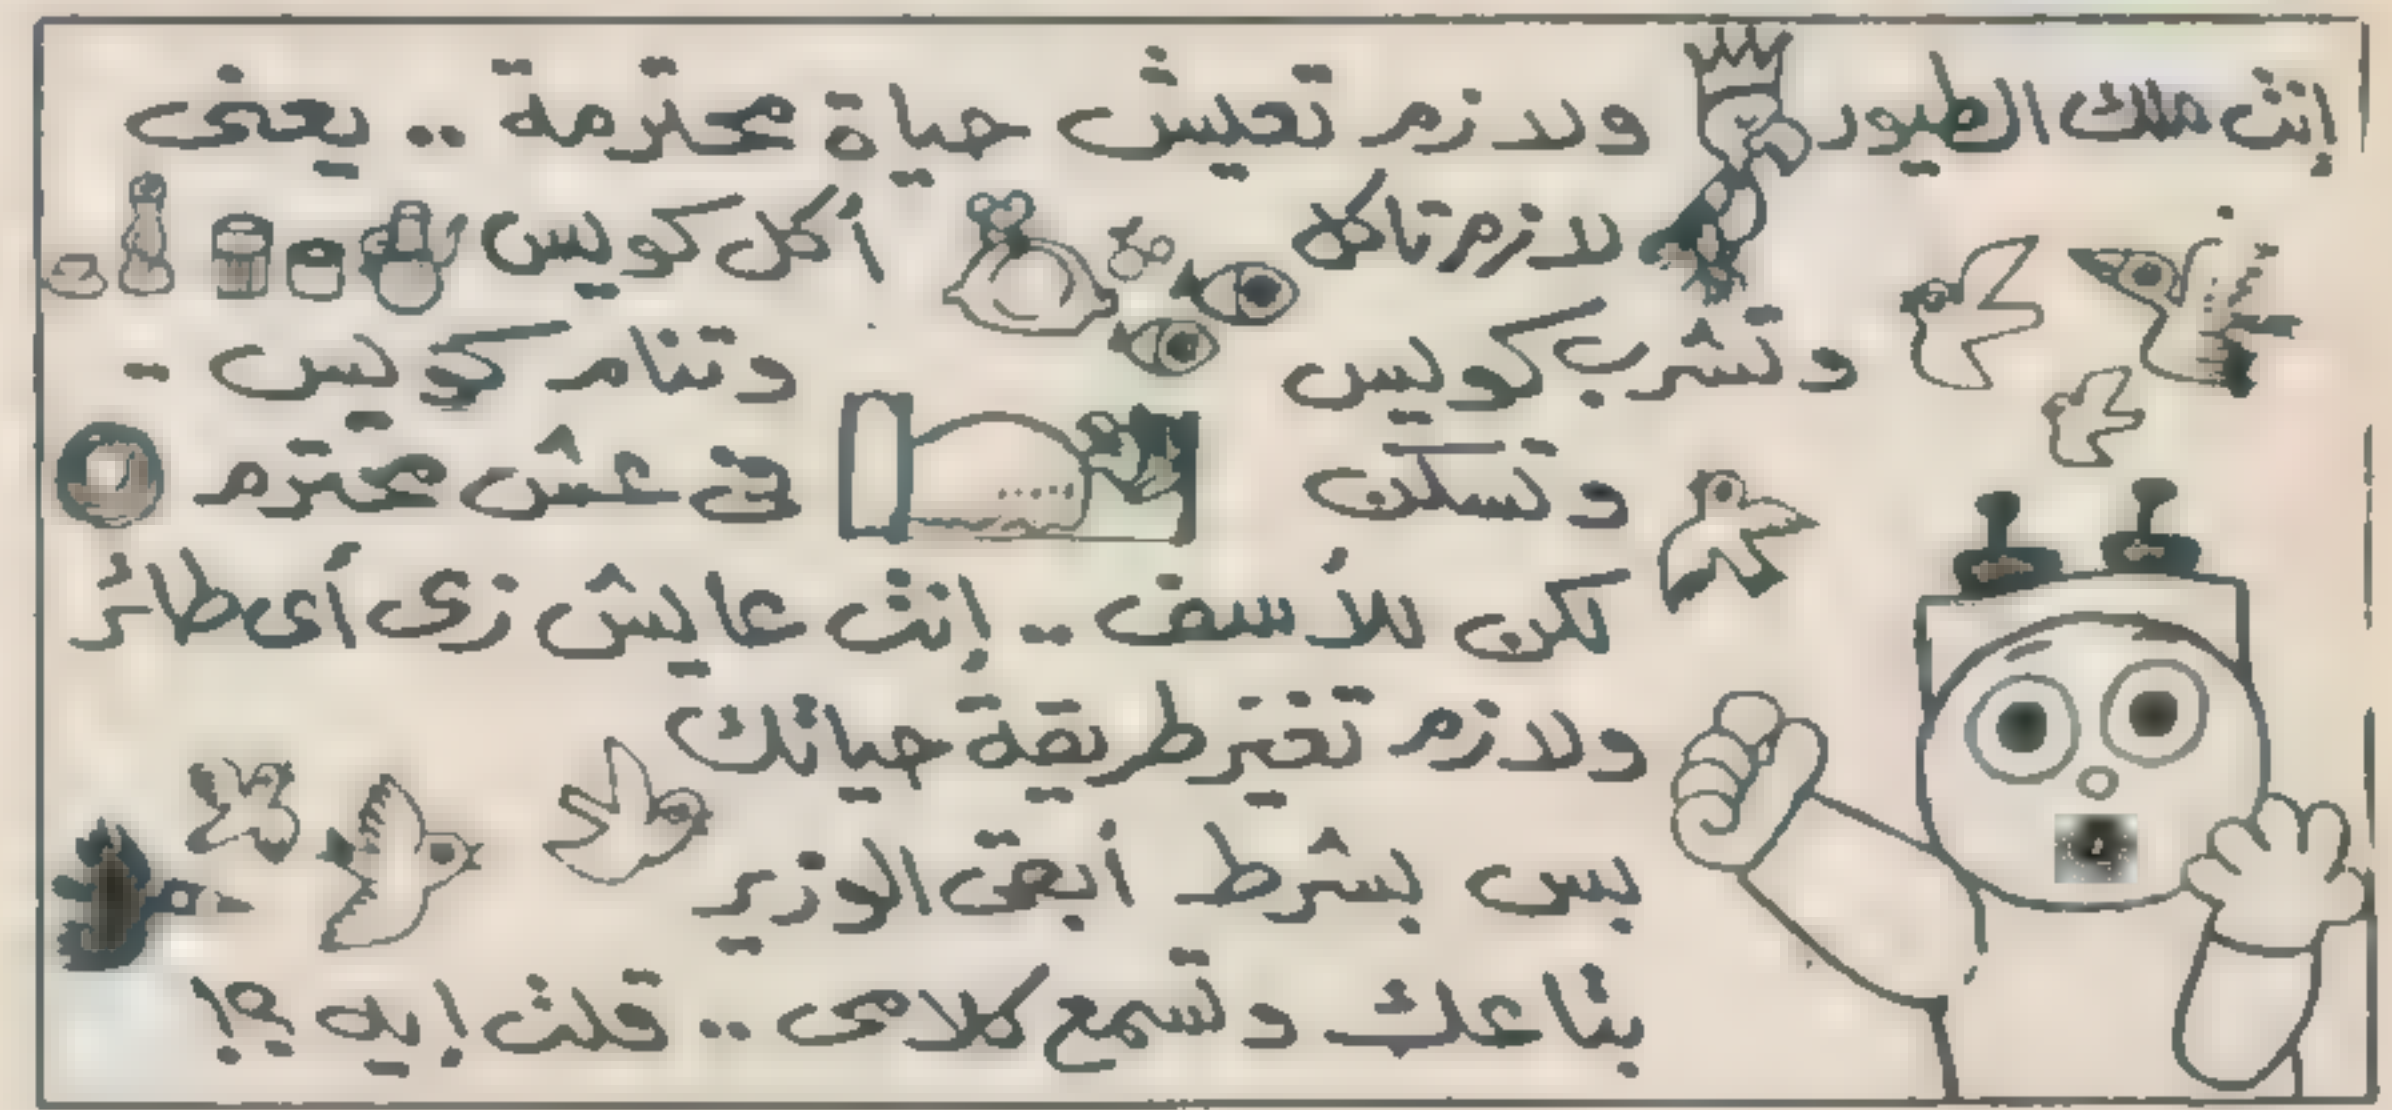 إنت ملك الطيور ولازم تعيش حياة محترمة .. يعنى
لازم تاكل أكل كويس
وتشرب كويس وتنام كويس -
وتسكن فى عش محترم
لكن للأسف .. إنت عايش زى أى طائر
ولازم تغير طريقة حياتك
بس بشرط أبقى الوزير
بتاعك وتسمع كلامى .. قلت إيه ؟!